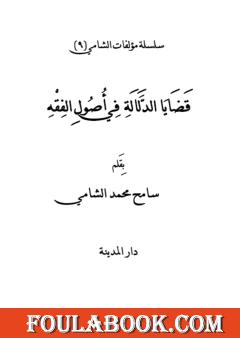 سلسلة مؤلفات الشامي (٩)
قَضَايَا الدَّلَالَةِ فِي أُصُولِ الفِقْهِ
بِقَلم
سامح محمد الشامي
دار المدينة
FOULABOOK.COM